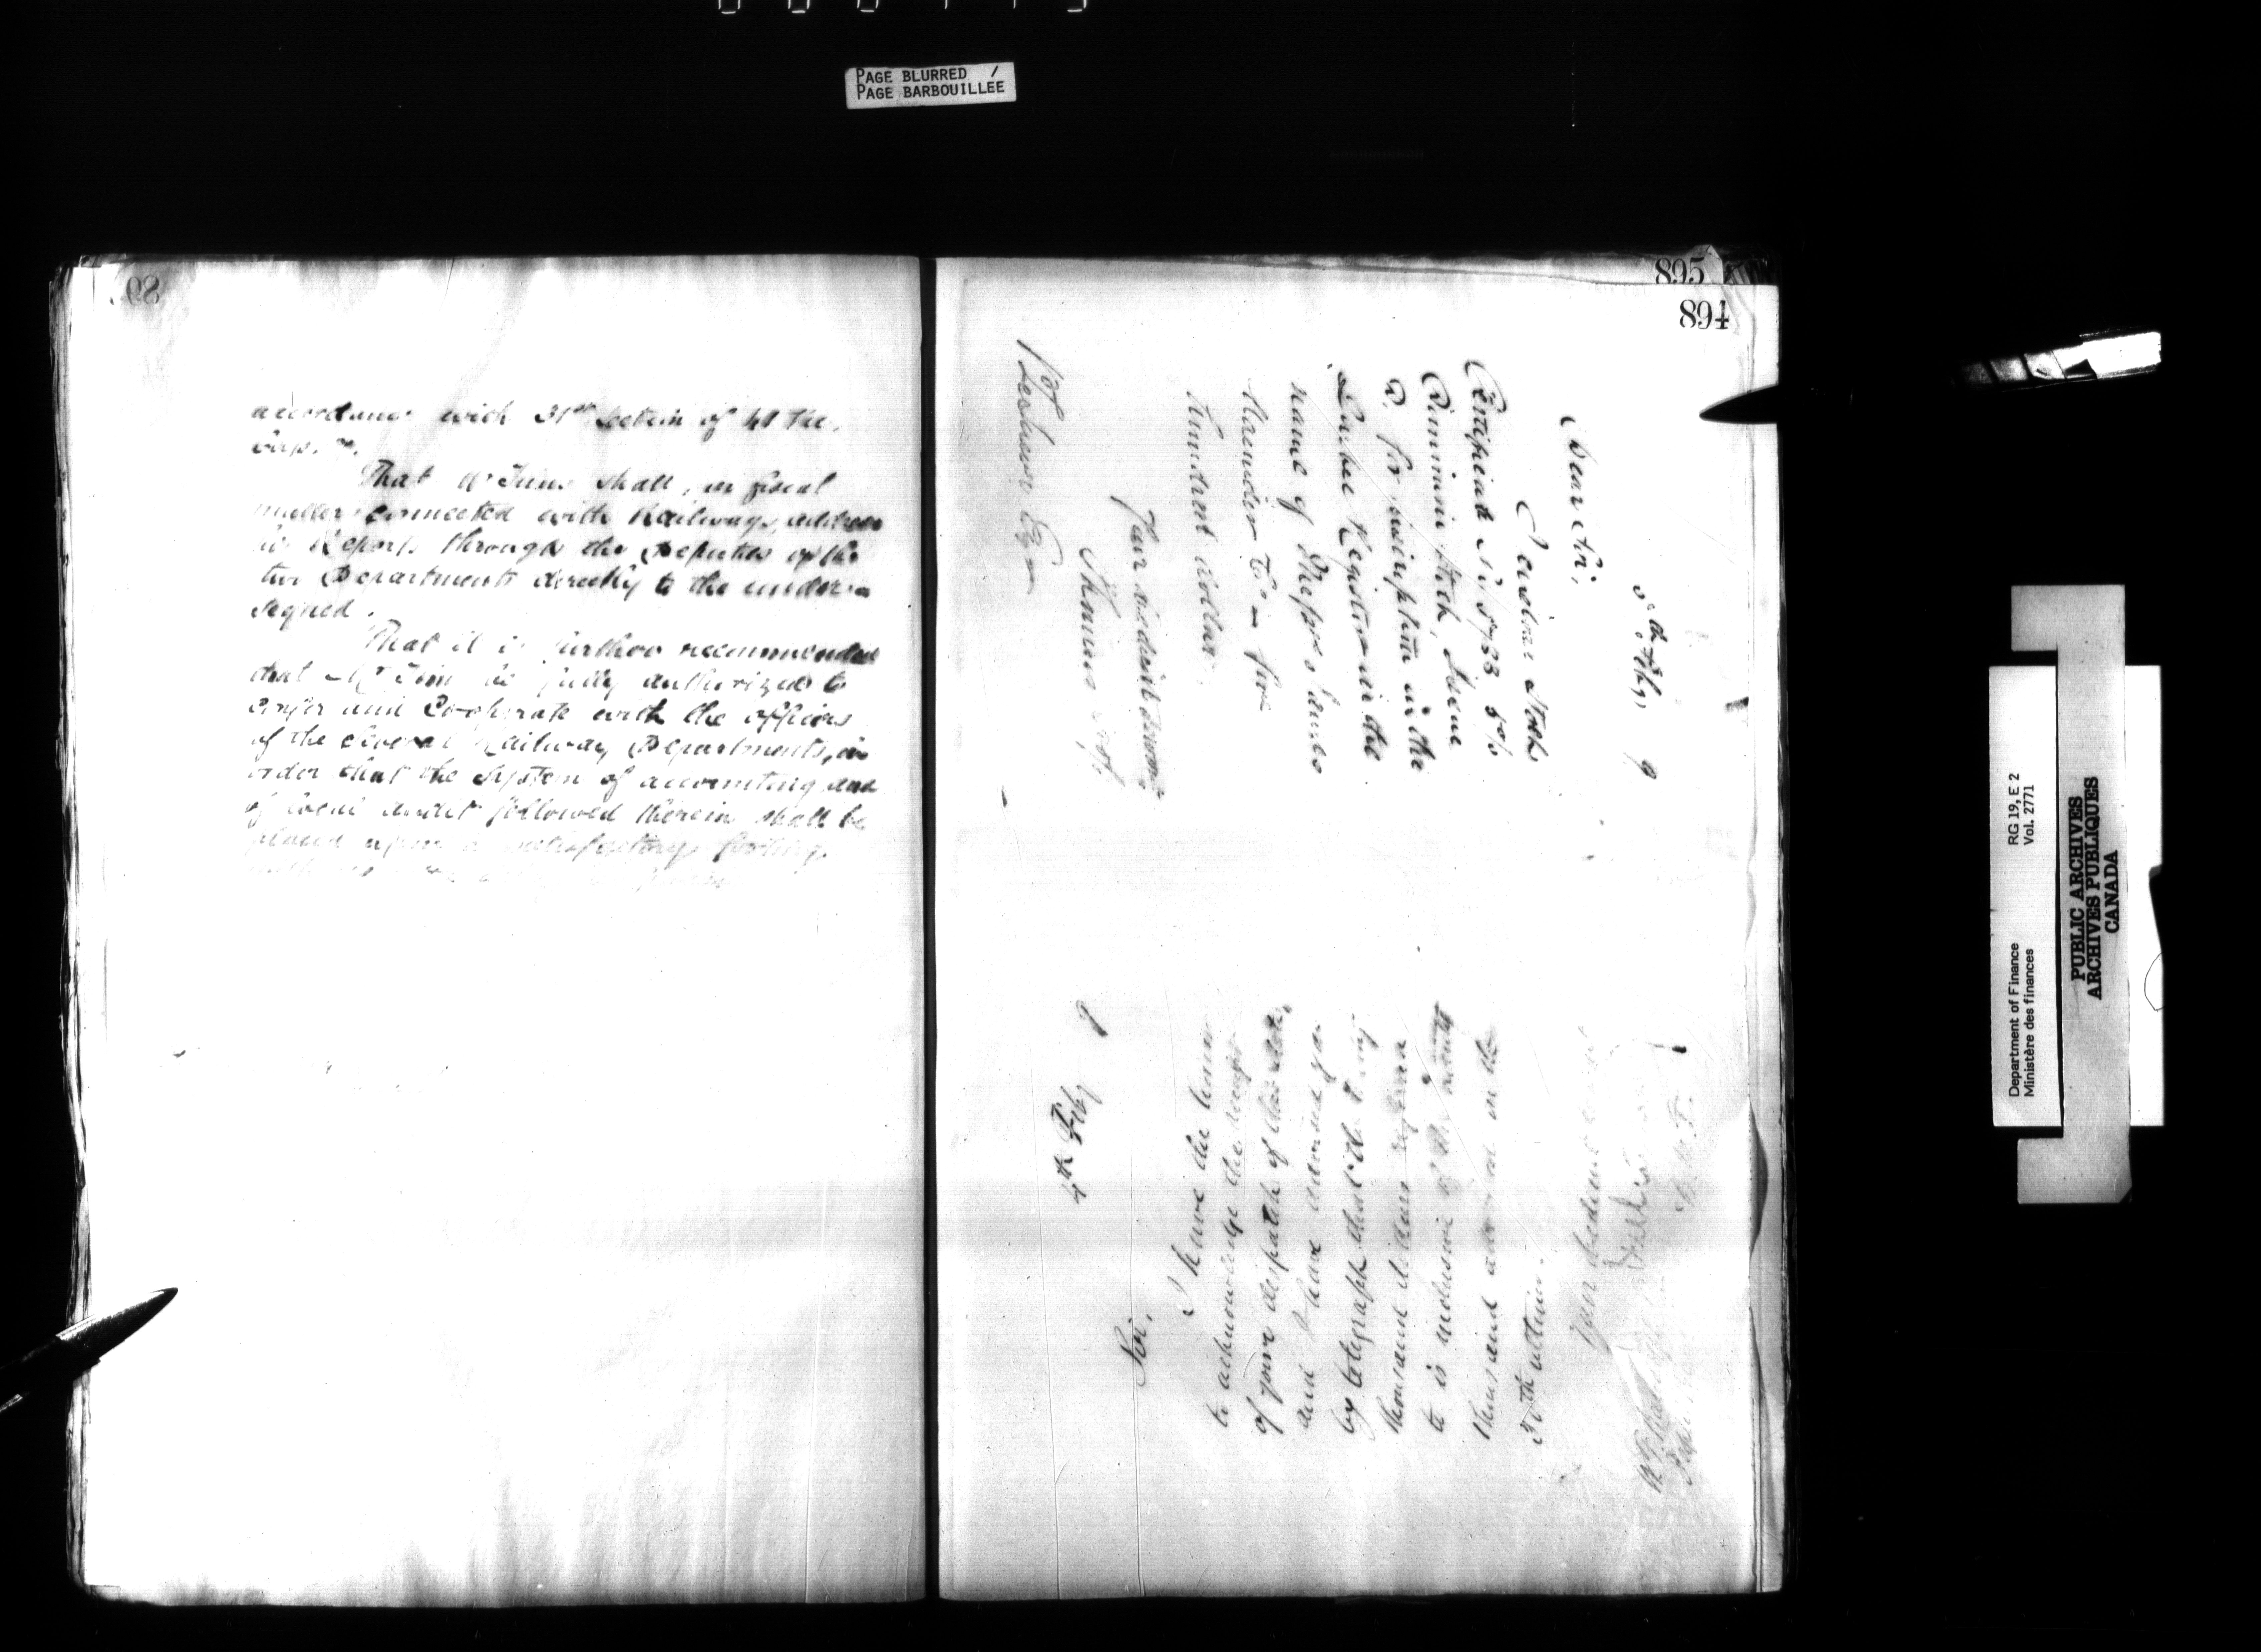 PAGE BLURRED /
PAGE BARBOUILLEE
accordance with 31st Section of 41 Vic.
Cap. 7.
That Mr Tims shall, in fiscal
matters connected with Railways, address
his Reports through the Deputies of the
two Departments directly to the under-
signed.
That it is further recommended
that Mr Tims be fully authorized to
confer and Co-operate with the officers
of the several Railway Departments, in
order that the system of accounting and
of local audit followed therein shall be
placed upon a satisfactory footing
895
894
5th Feby 9
Dear Sir,
I enclose Stock
Certificate No 5733 5%
Dominion Stock, Issue
D. for inscription in the
Quebec Register in the
name of Messrs James
Alexander Co - five
hundred dollars.
Your obedient Servant
4th Feby 9
Sir,
I have the honor
to acknowledge the receipt
of your despatch of this date,
and I have advised you
by telegraph that the
thousand dollars referred
to is inclusive of the
thousand advised on the
30th ultimo.
Your obedient servant
D.M.F.
Department of Finance RG 19, E 2
Ministère des finances Vol. 2771
PUBLIC ARCHIVES
ARCHIVES PUBLIQUES
CANADA